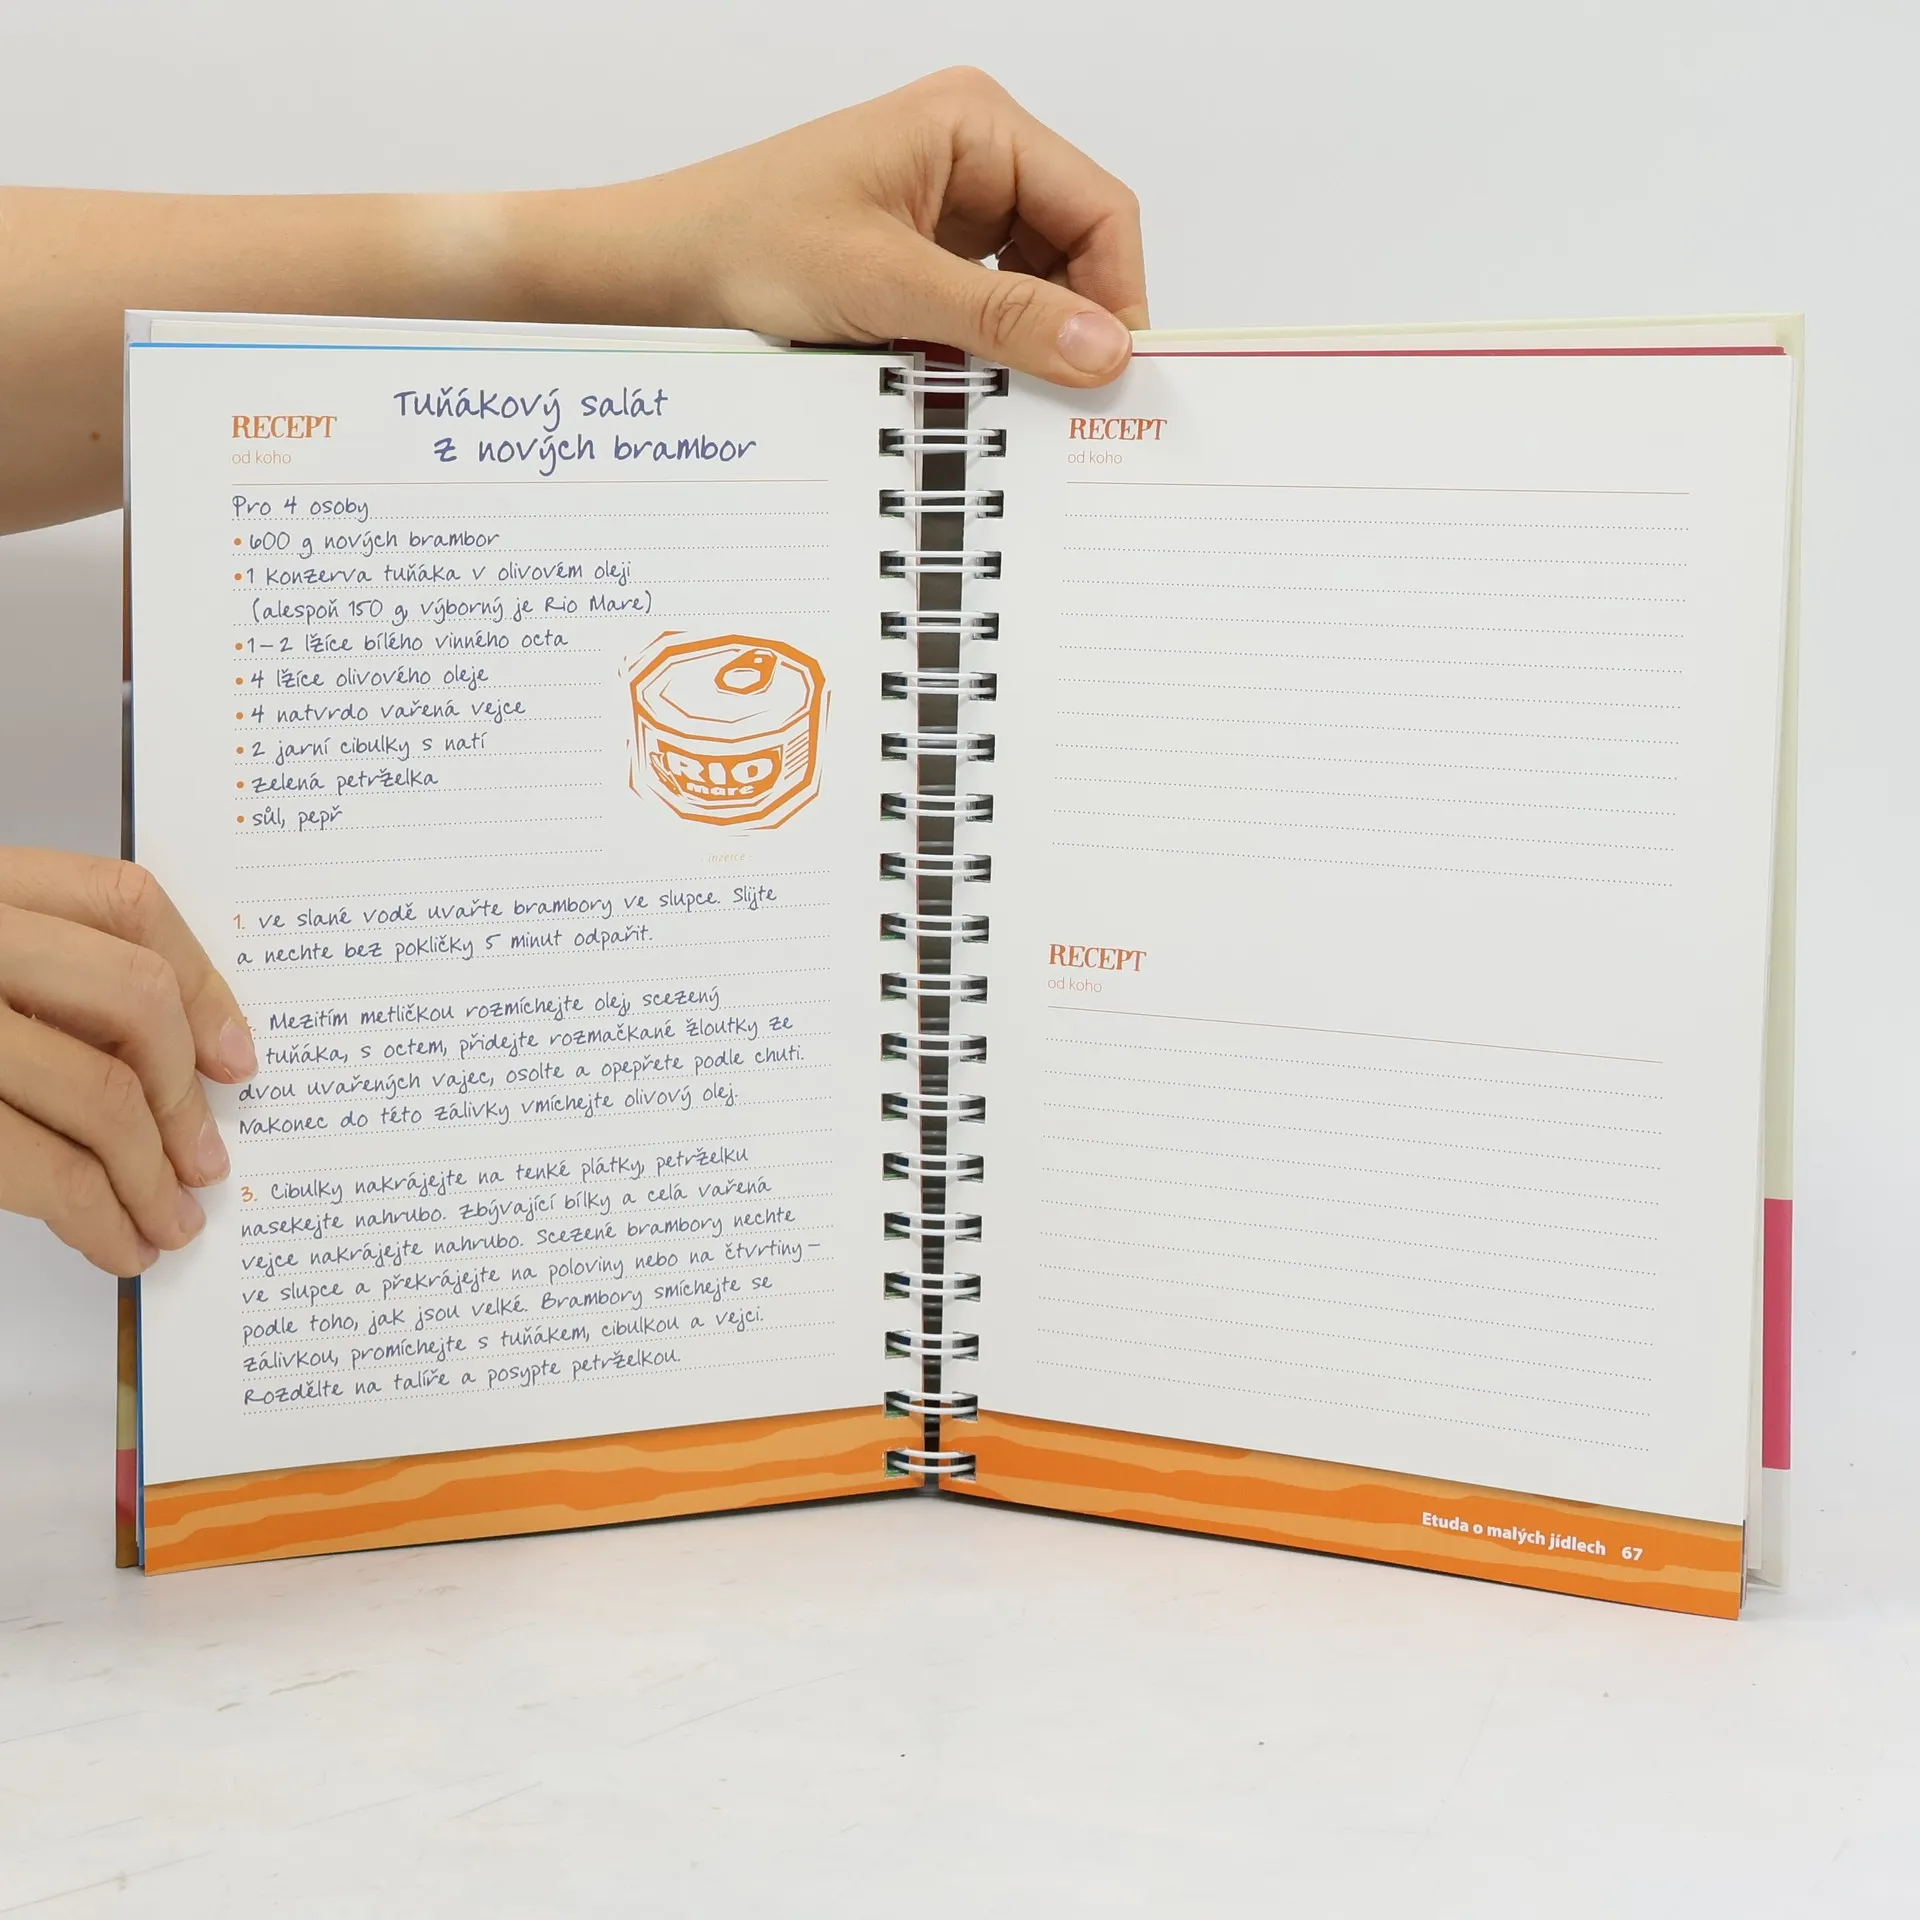 RECEPT
od koho
Tuňákový salát
z nových brambor
Pro 4 osoby
• 600 g nových brambor
• 1 konzerva tuňáka v olivovém oleji
(alespoň 150 g, výborný je Rio Mare)
• 1–2 lžíce bílého vinného octa
• 4 lžíce olivového oleje
• 4 natvrdo vařená vejce
• 2 jarní cibulky s natí
• zelená petrželka
• sůl, pepř
RIO
mare
- inzerce -
1. Ve slané vodě uvařte brambory ve slupce. Slijte
a nechte bez pokličky 5 minut odpařit.
Mezitím metličkou rozmíchejte olej, scezený
tuňáka, s octem, přidejte rozmačkané žloutky ze
dvou uvařených vajec, osolte a opepřete podle chuti.
Nakonec do této zálivky vmíchejte olivový olej.
3. Cibulky nakrájejte na tenké plátky, petrželku
nasekejte nahrubo. Zbývající bílky a celá vařená
vejce nakrájejte nahrubo. Scezené brambory nechte
ve slupce a překrájejte na poloviny nebo na čtvrtiny –
podle toho, jak jsou velké. Brambory smíchejte se
zálivkou, promíchejte s tuňákem, cibulkou a vejci.
Rozdělte na talíře a posypte petrželkou.
RECEPT
od koho
RECEPT
od koho
Etuda o malých jídlech 67